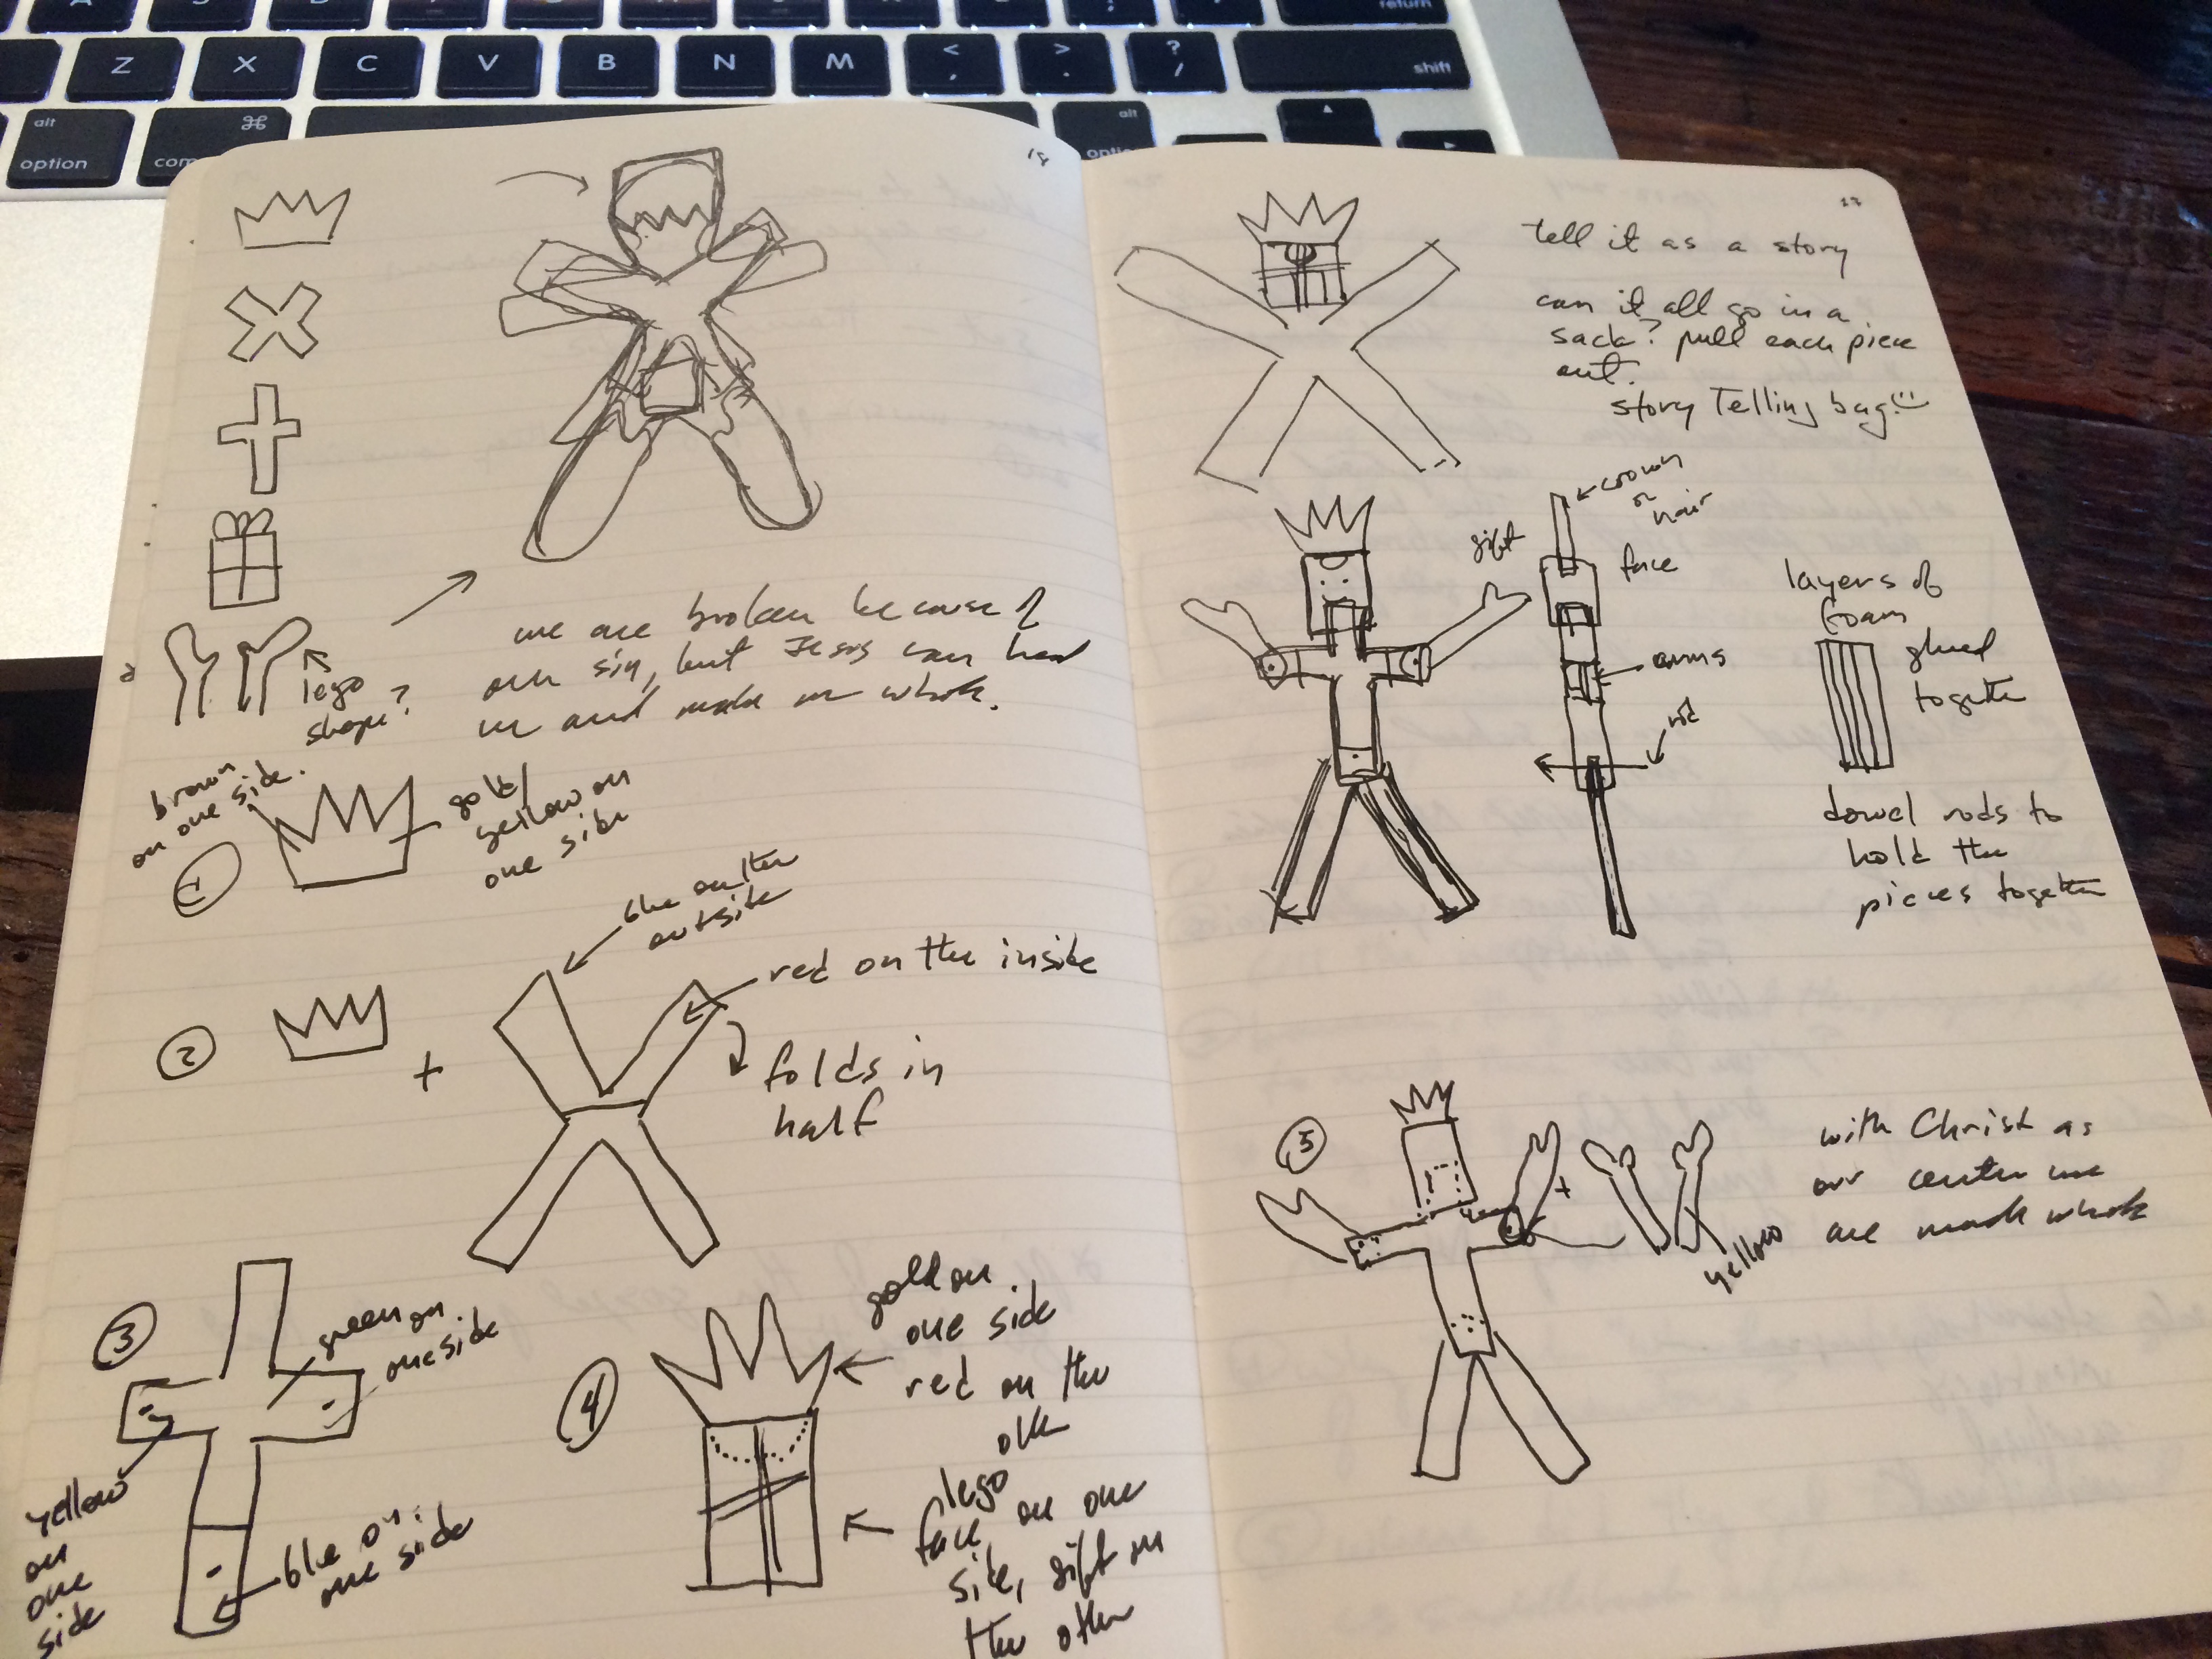 return
Z X C V B N M < , > . ? / shift
alt option
⌘
alt
lego
shape?
we are broken because of
our sin, but Jesus can heal
us and make us whole.
brown
on one side.
gold/
yellow on
one side
1
blue on the
outside
red on the inside
2
+
folds in
half
3
green on
one side
yellow
on
one
side
blue on
one side
4
gold on
one side
red on the
other
lego
face on one
side, gift on
the other
17
tell it as a story
can it all go in a
sack? pull each piece
out.
story Telling bag!
crown
or
hair
gift
face
arms
rod
layers of
foam
glued
together
dowel rods to
hold the
pieces together
5
+
yellow
with Christ as
our center we
are made whole